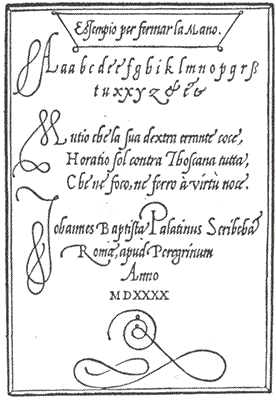 Essempio per fermar la Mano.
Aabcdeefghiklmnopqrsß
tuxxyz&&
Mutio che la sua dextra errante coce,
Horatio sol contra Thoscana tutta,
Che ne foco, ne ferro à virtù noce.
Iohannes Baptista Palatinus Scribebat
Romæ, apud Peregrinum
Anno
MDXXXX